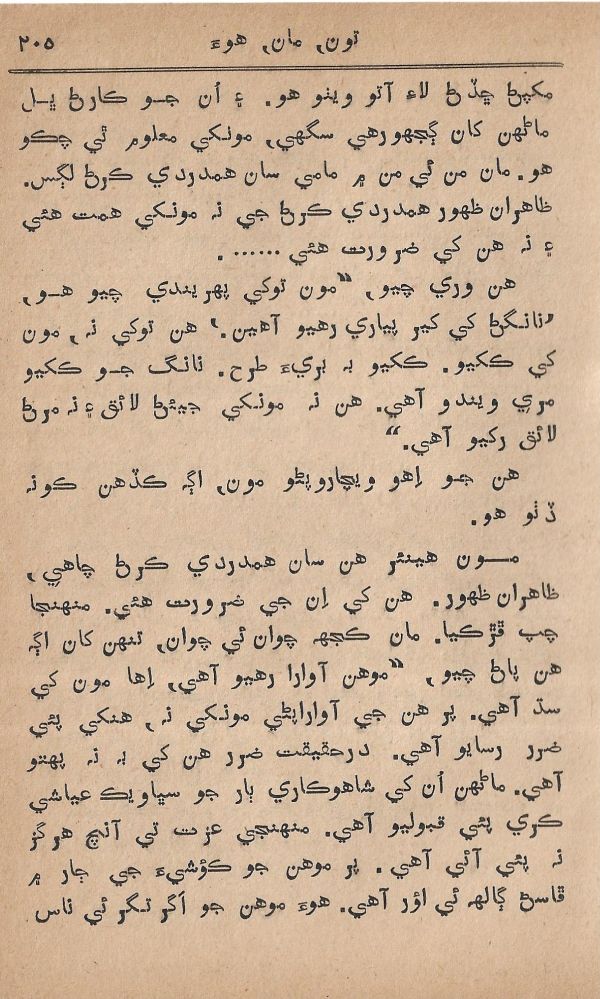 تون، مان، هوءَ ۲۰۵
مکپڻ ڇڏڻ لاءِ آتو ويٺو هو. ۽ اُن جـو ڪارڻ ڀـل
ماڻهن کان ڳجهو رهي سگهي، مونکي معلوم ئي چڪو
هو. مان من ئي من ۾ مامي سان همدردي ڪرڻ لڳس.
ظاهران ظهور همدردي ڪرڻ جي نہ مونکي همت هئي
۽ نہ هن کي ضرورت هئي ...... .
هن وري چيو، “مون توکي پهريندي چيو هـو،
’نانگڻ کي کير پياري رهيو آهين.‘ هن توکي نہ، مون
کي ڪکيو. ڪکيو بہ بريءَ طرح. نانگ جـو ڪکيو
مري ويندو آهي. هن نہ مونکي جيئڻ لائق ۽ نہ مرڻ
لائق رکيو آهي.“
هن جـو اِهو ويچاروپڻو مون، اڳہ ڪڏهن ڪونہ
ڏٺو هو.
مــون هينئر هن سان همدردي ڪرڻ چاهي،
ظاهران ظهور. هن کي اِن جي ضرورت هئي. منهنجا
چپ ڦڙڪيا. مان ڪجهہ چوان ئي چوان، تنهن کان اڳہ
هن پاڻ چيو، “موهن آوارا رهيو آهي، اِها مون کي
سڌ آهي. پر هن جي آواراپڻي مونکي نہ، هنکي پئي
ضرر رسايو آهي. درحقيقت ضرر هن کي بہ نہ پهتو
آهي. ماڻهن اُن کي شاهوڪاري ٻار جو سڀاويڪ عياشي
ڪري پئي قبوليو آهي. منهنجي عزت تي آنچ هرگز
نہ پئي آئي آهي. پر موهن جو ڪؤشيءَ جي ڄار ۾
ڦاسڻ ڳالهہ ئي اؤر آهي. هوءَ موهن جو اَگر تگر ئي ناس